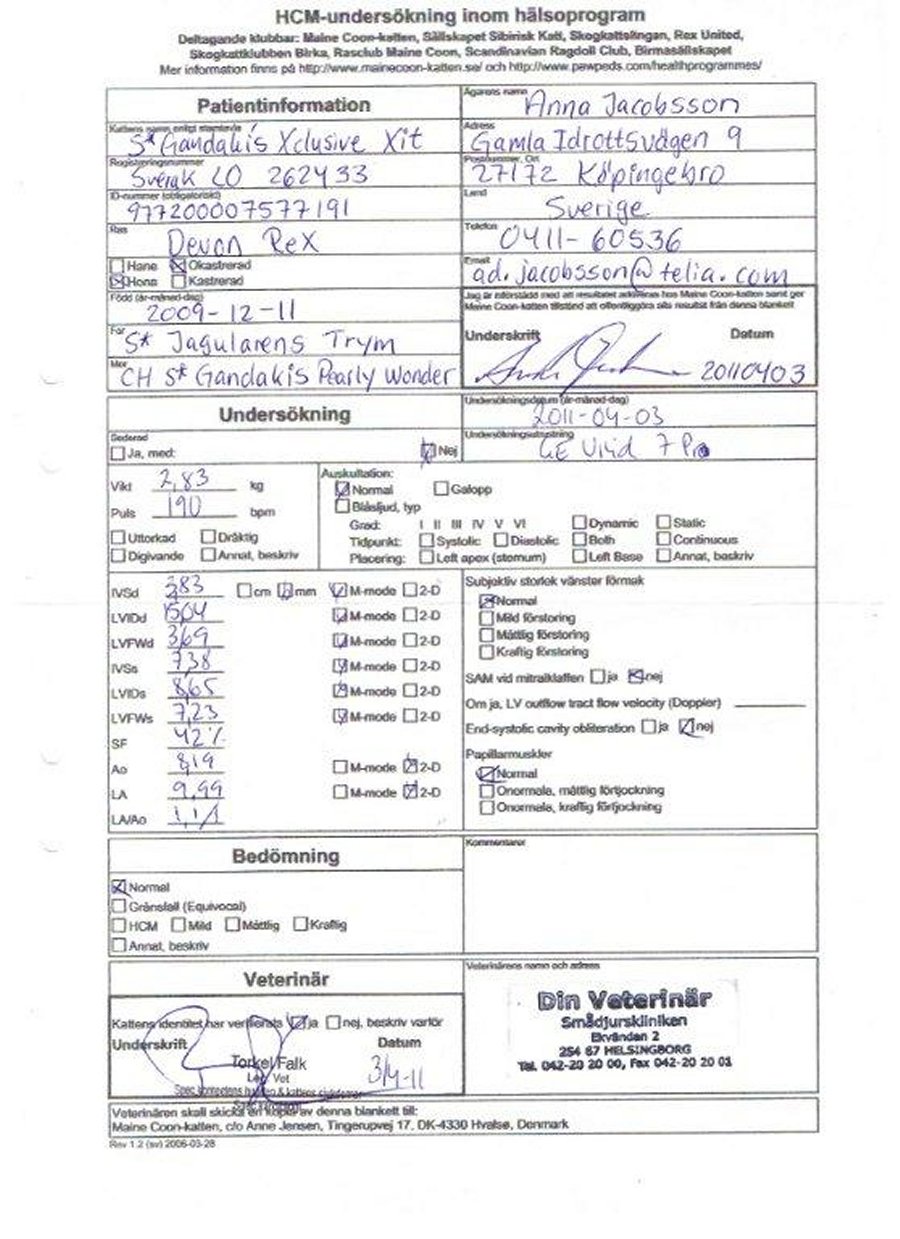 HCM-undersökning inom hälsoprogram
Deltagande klubbar: Maine Coon-katten, Sällskapet Sibirisk Katt, Skogkattslingan, Rex United,
Skogkattklubben Birka, Rasclub Maine Coon, Scandinavian Ragdoll Club, Birmasällskapet
Mer information finns på http://www.mainecoon-katten.se/ och http://www.pawpeds.com/healthprogrammes/
Patientinformation
Kattens namn enligt stamtavla
S* Gandakis Xclusive Xit
Registreringsnummer
Sverak LO 262433
ID-nummer (obligatoriskt)
977200007577191
Ras
Devon Rex
Hane Okastrerad
Hona Kastrerad
Född (år-månad-dag)
2009-12-11
Far
S* Jagularens Trym
Mor
CH S* Gandakis Pearly Wonder
Ägarens namn
Anna Jacobsson
Adress
Gamla Idrottsvägen 9
Postnummer, Ort
27172 Köpingebro
Land
Sverige
Telefon
0411-60536
Email
ad.jacobsson@telia.com
Jag är införstådd med att resultatet arkiveras hos Maine Coon-katten samt ger
Maine Coon-katten tillstånd att offentliggöra alla resultat från denna blankett
Underskrift Datum
20110403
Undersökning
Sederad
Ja, med: Nej
Undersökningsdatum (år-månad-dag)
2011-04-03
Undersökningsutrustning
GE Vivid 7 Pro
Vikt 2,83 kg
Puls 190 bpm
Uttorkad Dräktig
Digivande Annat, beskriv
Auskultation:
Normal Galopp
Blåsljud, typ
Grad: I II III IV V VI Dynamic Static
Tidpunkt: Systolic Diastolic Both Continuous
Placering: Left apex (sternum) Left Base Annat, beskriv
IVSd 3,83 cm mm M-mode 2-D
LVIDd 15,04 M-mode 2-D
LVFWd 3,69 M-mode 2-D
IVSs 7,38 M-mode 2-D
LVIDs 8,65 M-mode 2-D
LVFWs 7,23 M-mode 2-D
SF 42%
Ao 8,19 M-mode 2-D
LA 9,99 M-mode 2-D
LA/Ao
Subjektiv storlek vänster förmak
Normal
Mild förstoring
Måttlig förstoring
Kraftig förstoring
SAM vid mitralklaffen ja nej
Om ja, LV outflow tract flow velocity (Doppler)
End-systolic cavity obliteration ja nej
Papillarmuskler
Normal
Onormala, måttlig förtjockning
Onormala, kraftig förtjockning
Bedömning
Normal
Gränsfall (Equivocal)
HCM Mild Måttlig Kraftig
Annat, beskriv
Kommentarer
Veterinär
Kattens identitet har verifierats ja nej, beskriv varför
Underskrift Datum
Torkel Falk
Leg Vet
3/4-11
Veterinärens namn och adress
Din Veterinär
Smådjurskliniken
Ekvändan 2
254 67 HELSINGBORG
Tel. 042-20 20 00, Fax 042-20 20 01
Veterinären skall skicka en kopia av denna blankett till:
Maine Coon-katten, c/o Anne Jensen, Tingerupvej 17, DK-4330 Hvalsø, Denmark
Rev 1.2 (sv) 2006-03-28